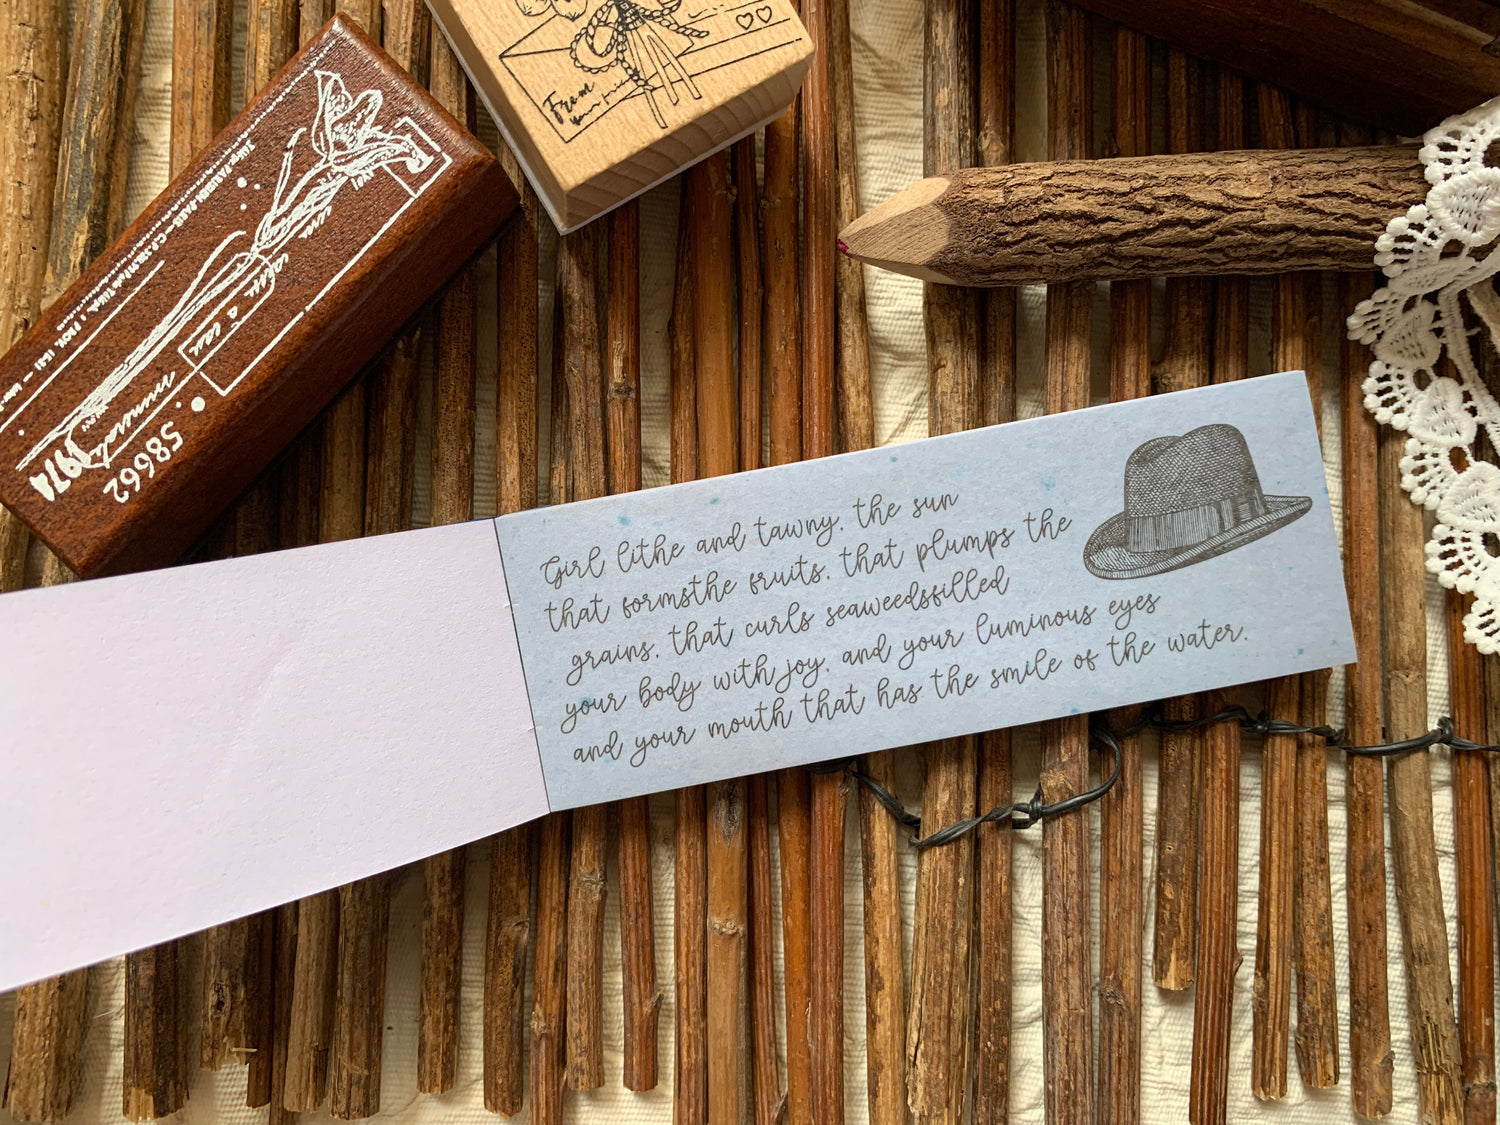 From
58662
1974
Girl lithe and tawny, the sun
that formsthe fruits, that plumps the
grains, that curls seaweedsfilled
your body with joy, and your luminous eyes
and your mouth that has the smile of the water.